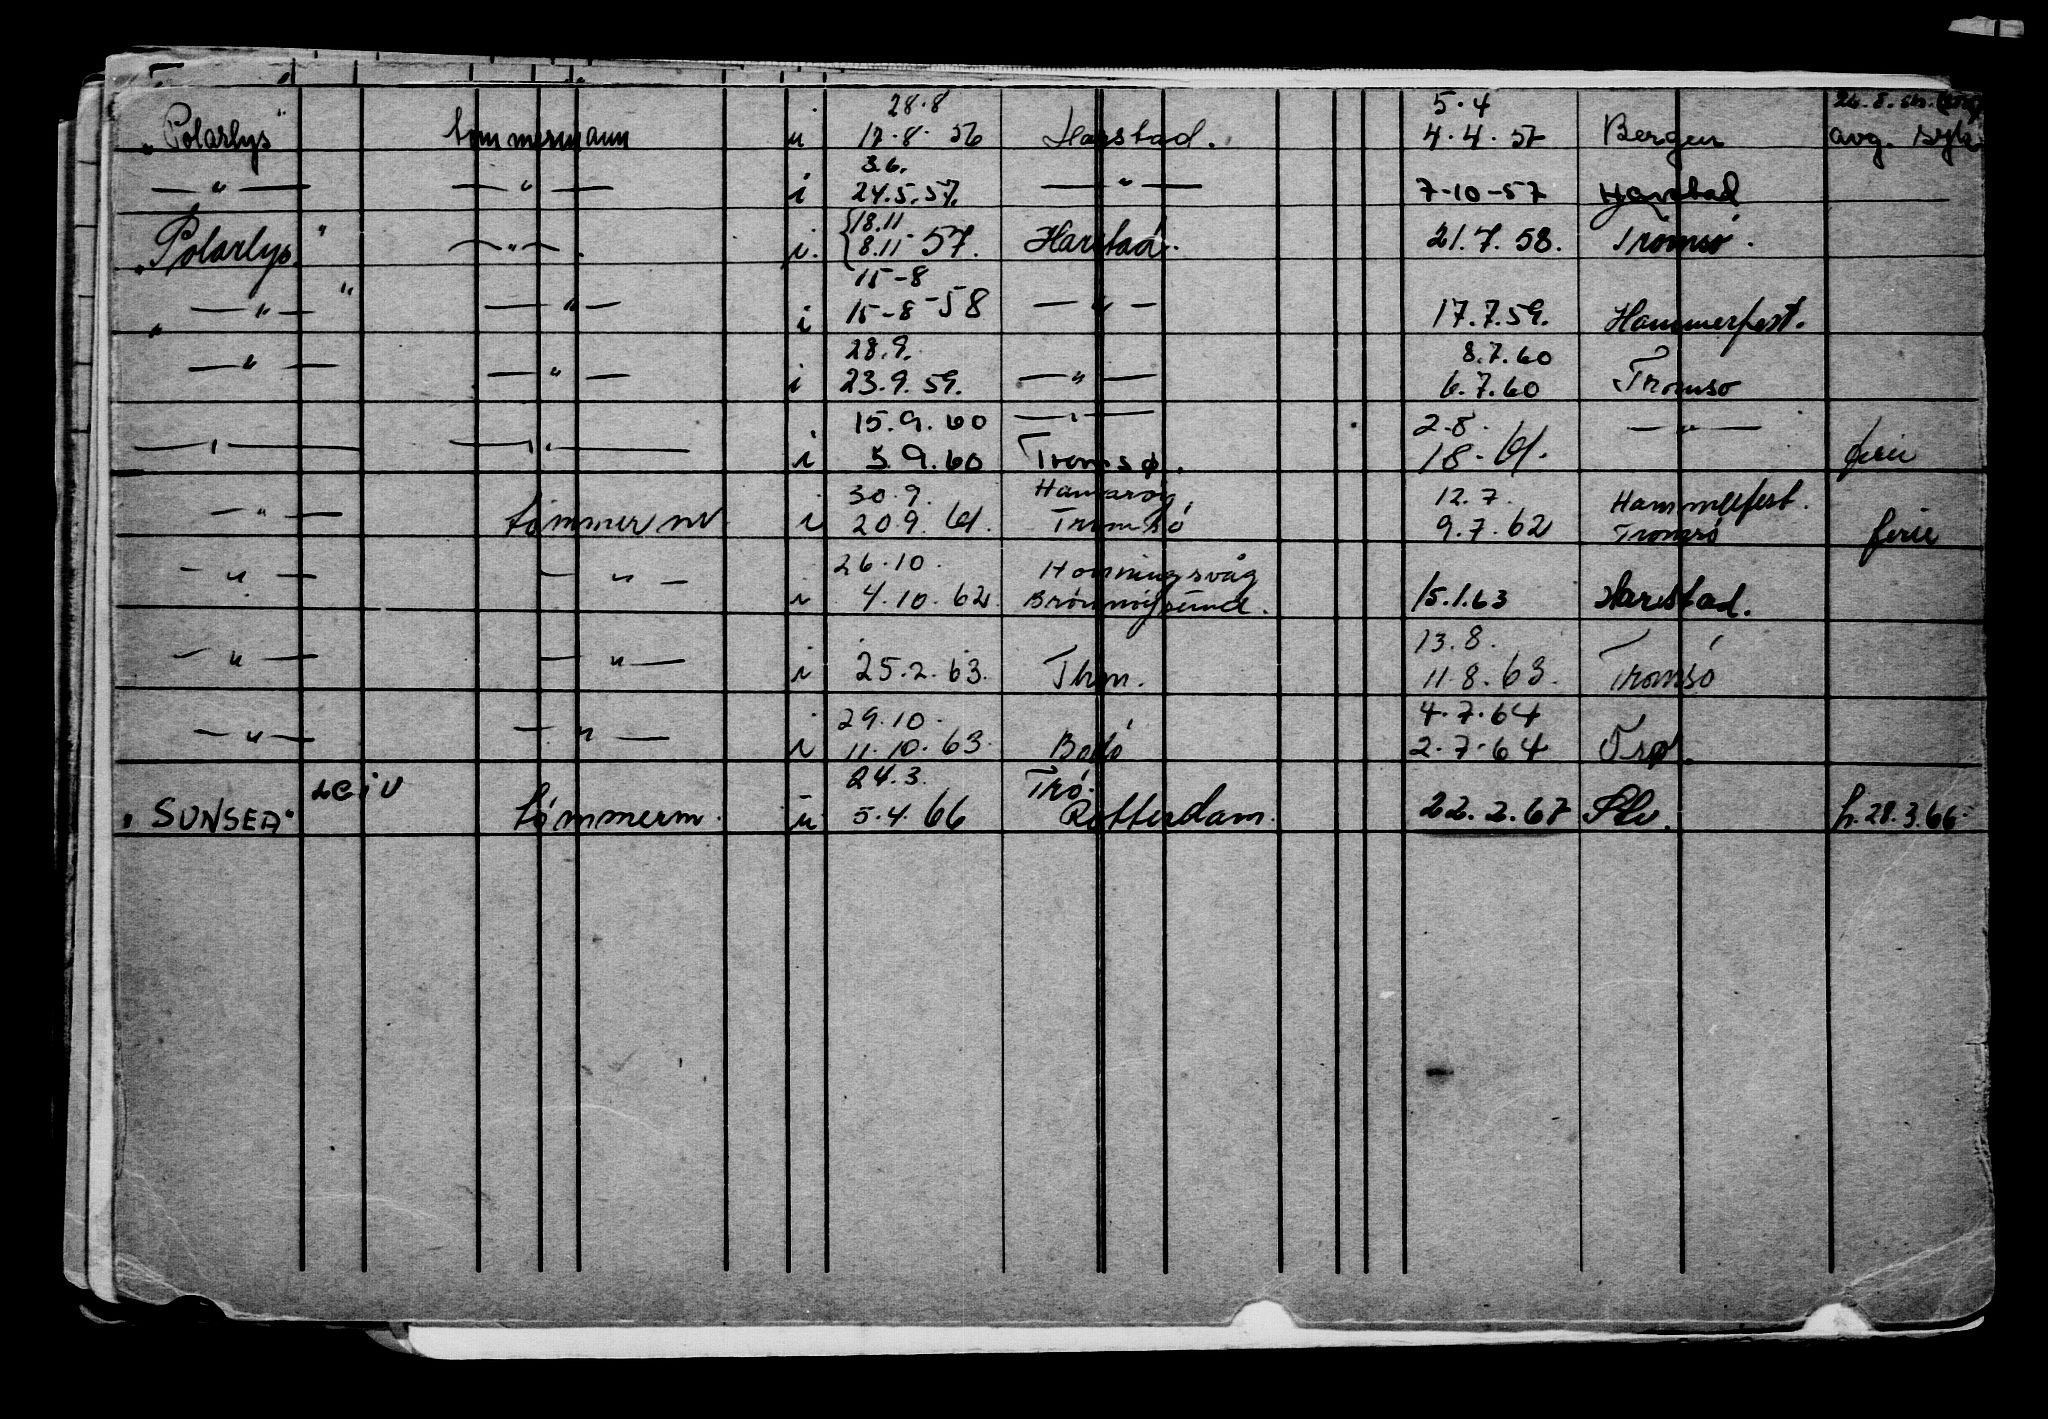 28.8 5.4
"Polarlys" tømmermann u 17.8.56 Harstad. 4.4.57 Bergen avg. syk.
3.6.
— " — — " — i 24.5.57. — " — 7-10-57 Harstad
18.11
"Polarlys" — " — . i. 8.11-57. Harstad. 21.7.58. Tromsø.
15-8
— " — " — " — i 15-8-58 — " — 17.7.59. Hammerfest.
28.9. 8.7.60
— " — — " — i 23.9.59. — " — 6.7.60 Tromsø
15.9.60 — " — 2.8. — " —
— " — — " — i 5.9.60 Tromsø. 18.61. ferie
30.9. 12.7. Hammerfest.
— " — tømmerm i 20.9.61. Tromsö 9.7.62 Tromsö ferie
26.10. Honningsvåg
— " — — " — i 4.10.62 Brönnöysund. 15.1.63 Harstad.
13.8.
— " — — " — i 25.2.63. Thm. 11.8.63. Tromsö
29.10. 4.7.64
— " — — " — i 11.10.63. Bodö 2.7.64
24.3. Trö.
"SUNSEA" LCIV tømmerm. u 5.4.66 Rotterdam. 22.2.67 h. 28.3.66